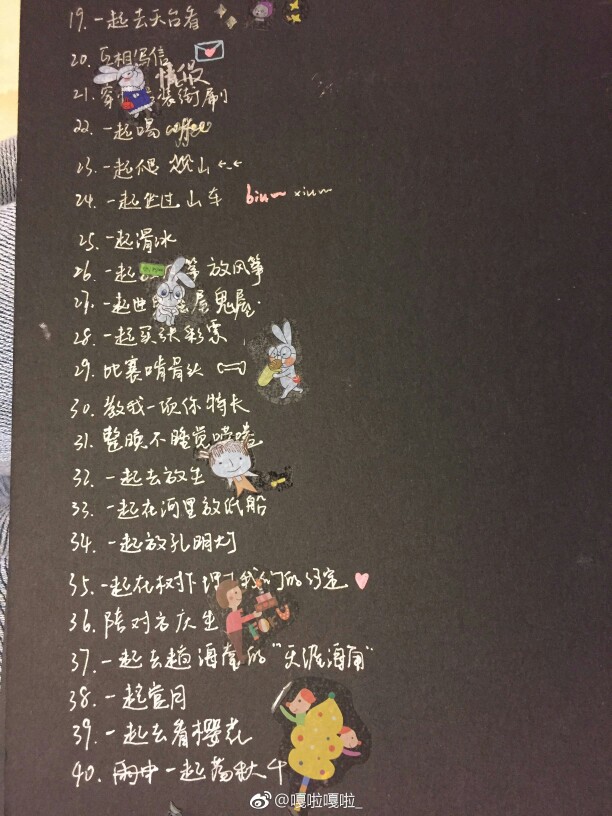 19. 一起去天台看
20. 互相写信 情侣
21. 穿 装街刷
22. 一起喝 coffee
23. 一起爬 山 ←-←
24. 一起坐过山车 biu~ xiu~
25. 一起滑冰
26. 一起 筝 放风筝
27. 一起 屋鬼屋.
28. 一起买张彩票
29. 比赛啃骨头
30. 教我一项你特长
31. 整晚不睡觉嘻嘻
32. 一起去放生
33. 一起在河里放纸船
34. 一起放孔明灯
35. 一起在树下埋 我们的约定
36. 陪对方庆生
37. 一起去趟海南的"天涯海角"
38. 一起赏月
39. 一起去看樱花
40. 雨中一起荡秋千
@嘎啦嘎啦_